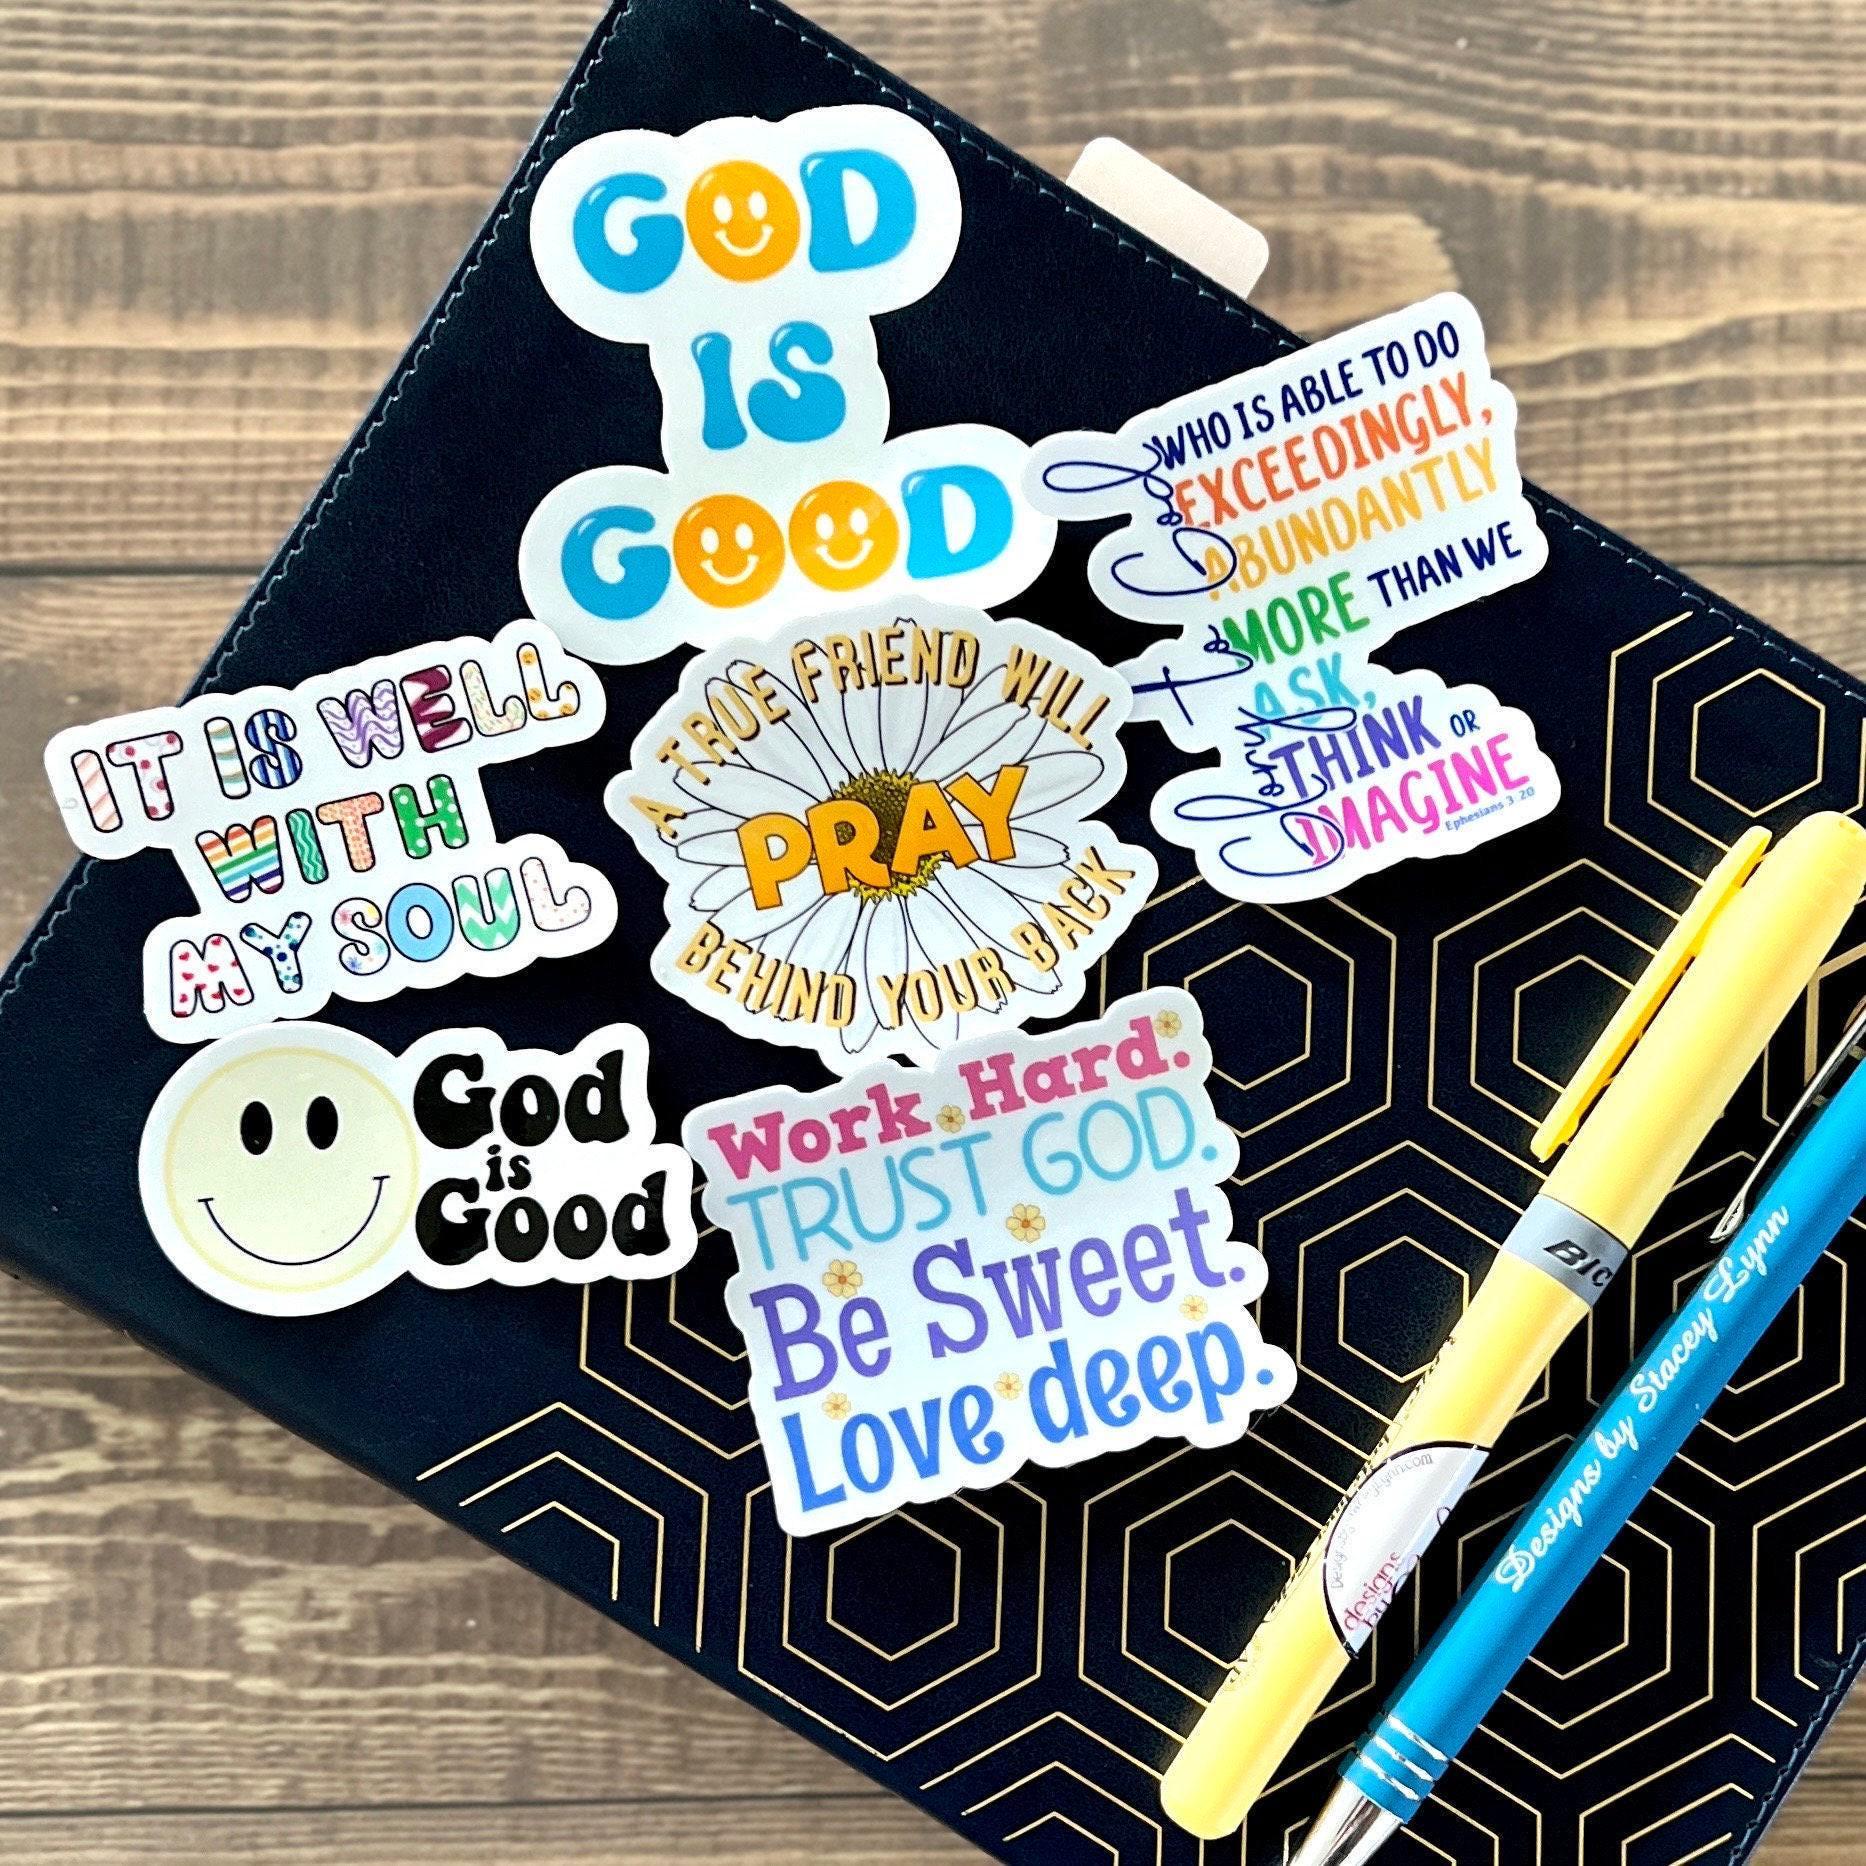 GOD
IS
GOOD
Glory
to
God
WHO IS ABLE TO DO
EXCEEDINGLY,
ABUNDANTLY
MORE THAN WE
ASK,
THINK OR
IMAGINE
Ephesians 3:20
IT IS WELL
WITH
MY SOUL
A TRUE FRIEND WILL
PRAY
BEHIND YOUR BACK
God
is
Good
Work Hard.
TRUST GOD.
Be Sweet.
Love deep.
BIC
designs
by
Designs by Stacey Lynn